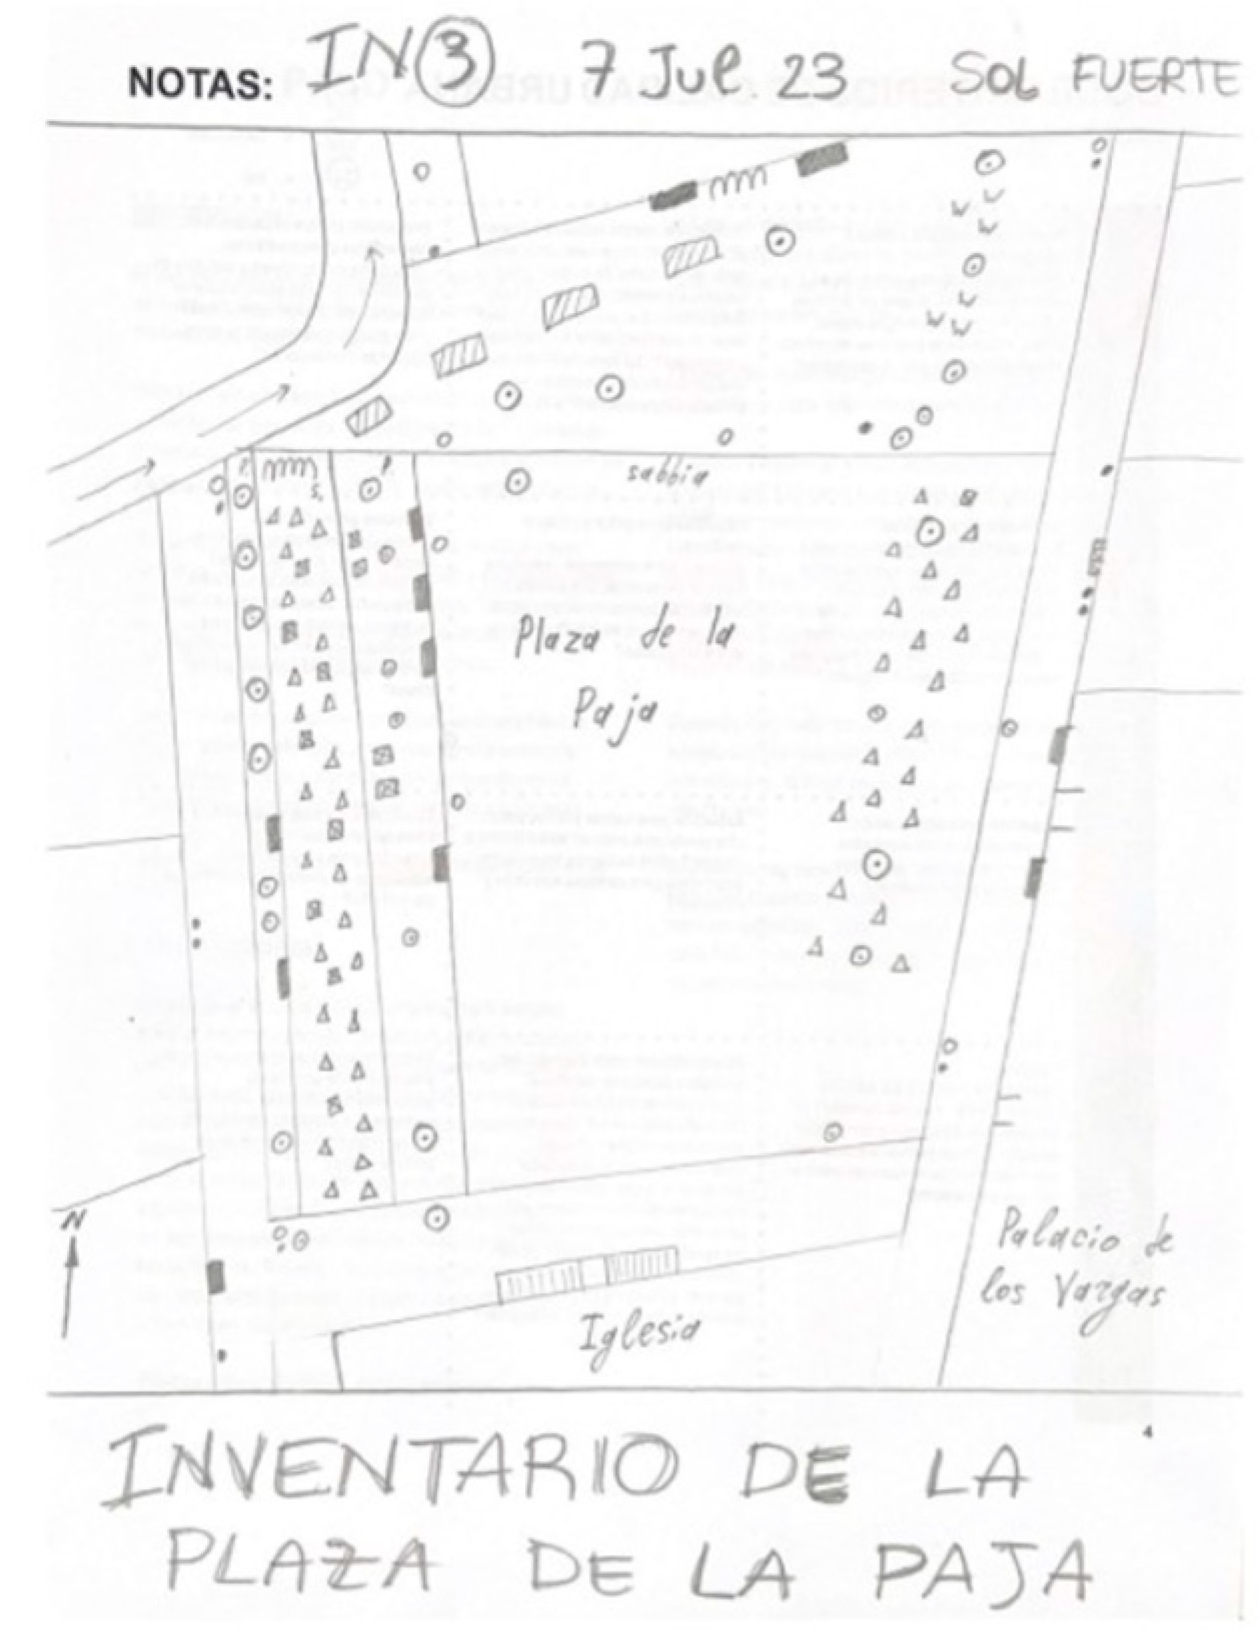 NOTAS: IN 3 7 Jul 23 SOL FUERTE
s.
sabbia
Plaza de la
Paja
N
Palacio de
los Vargas
Iglesia
4
INVENTARIO DE LA
PLAZA DE LA PAJA